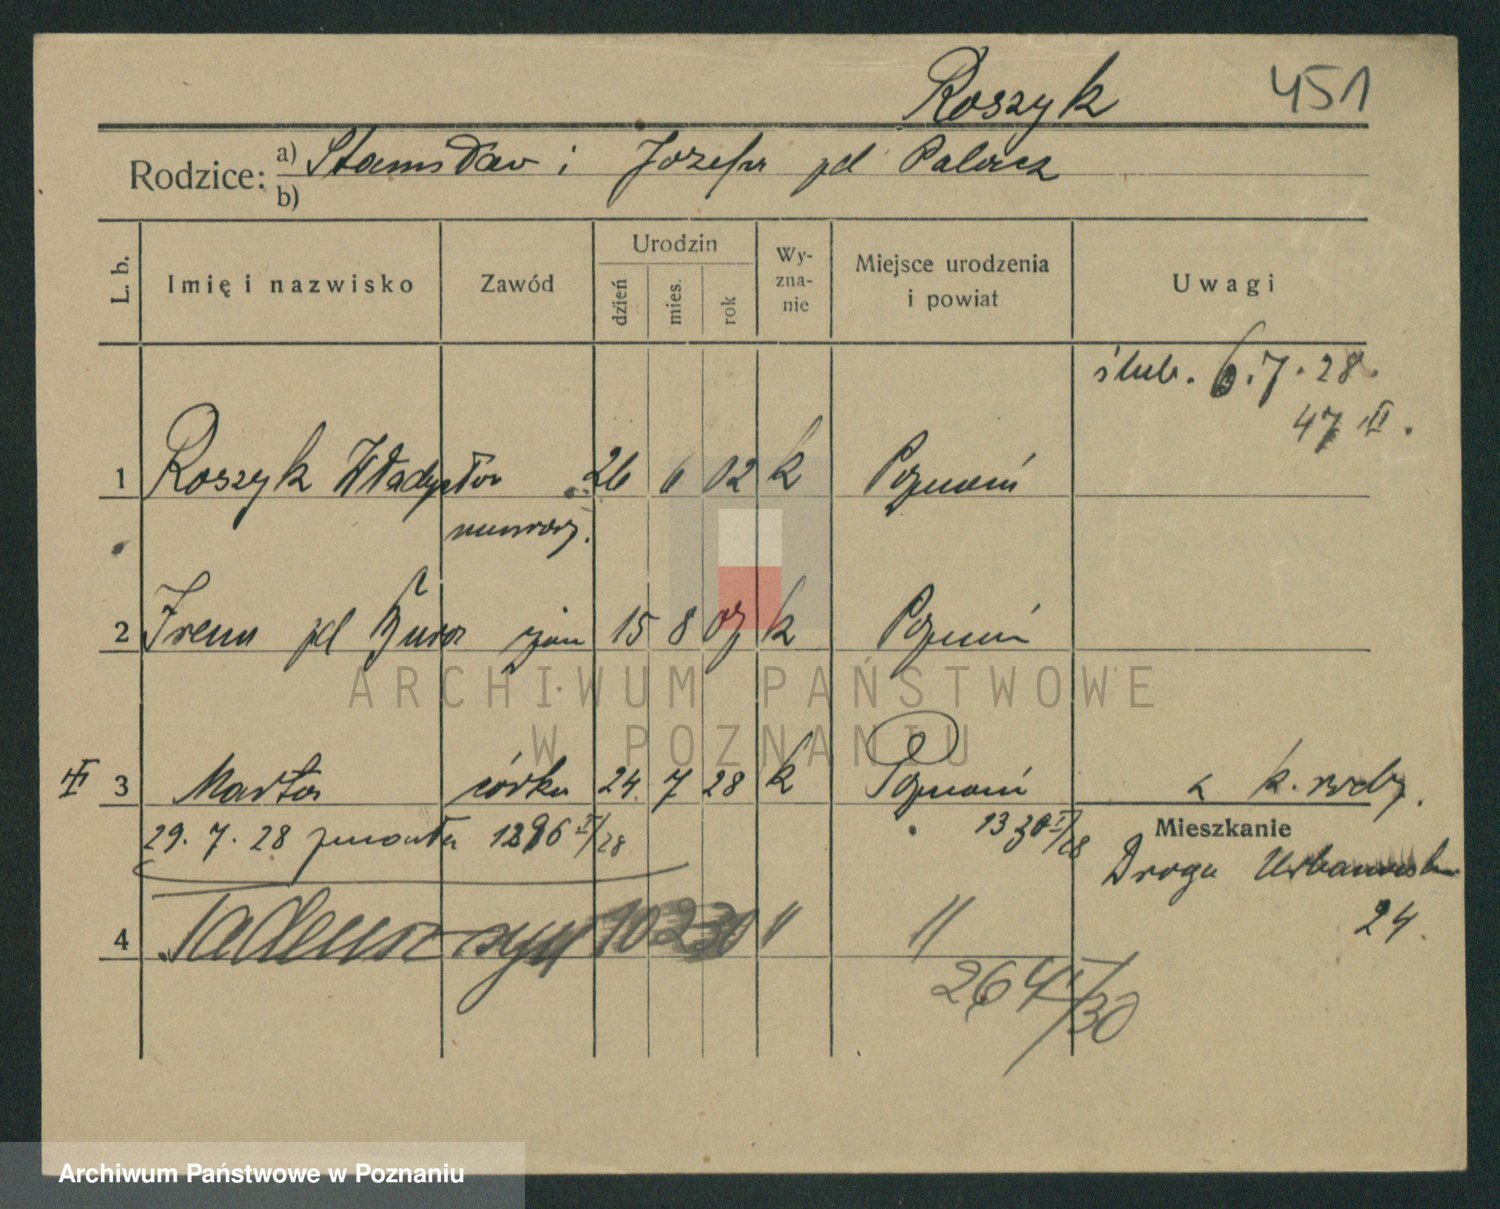 Roszyk 451
Rodzice: a) Stanisław i Józefa zd Palacz
b)
L. b. Imię i nazwisko Zawód Urodzin dzień mies. rok Wy-zna-nie Miejsce urodzenia i powiat Uwagi
ślub. 6.7.28
47 III.
1 Roszyk Władysław 26 6 02 k Poznań
murarz.
2 Irena zd 15 8 03 k Poznań
III 3 Marta córka 24. 7 28 k Poznań k.
29. 7. 28 zmarła 1296 II/28 1330 II/28 Mieszkanie
Droga Urbanowska
24.
4 Tadeusz syn 10 2 30 " "
264 I/30
ARCHIWUM PAŃSTWOWE
W POZNANIU
Archiwum Państwowe w Poznaniu